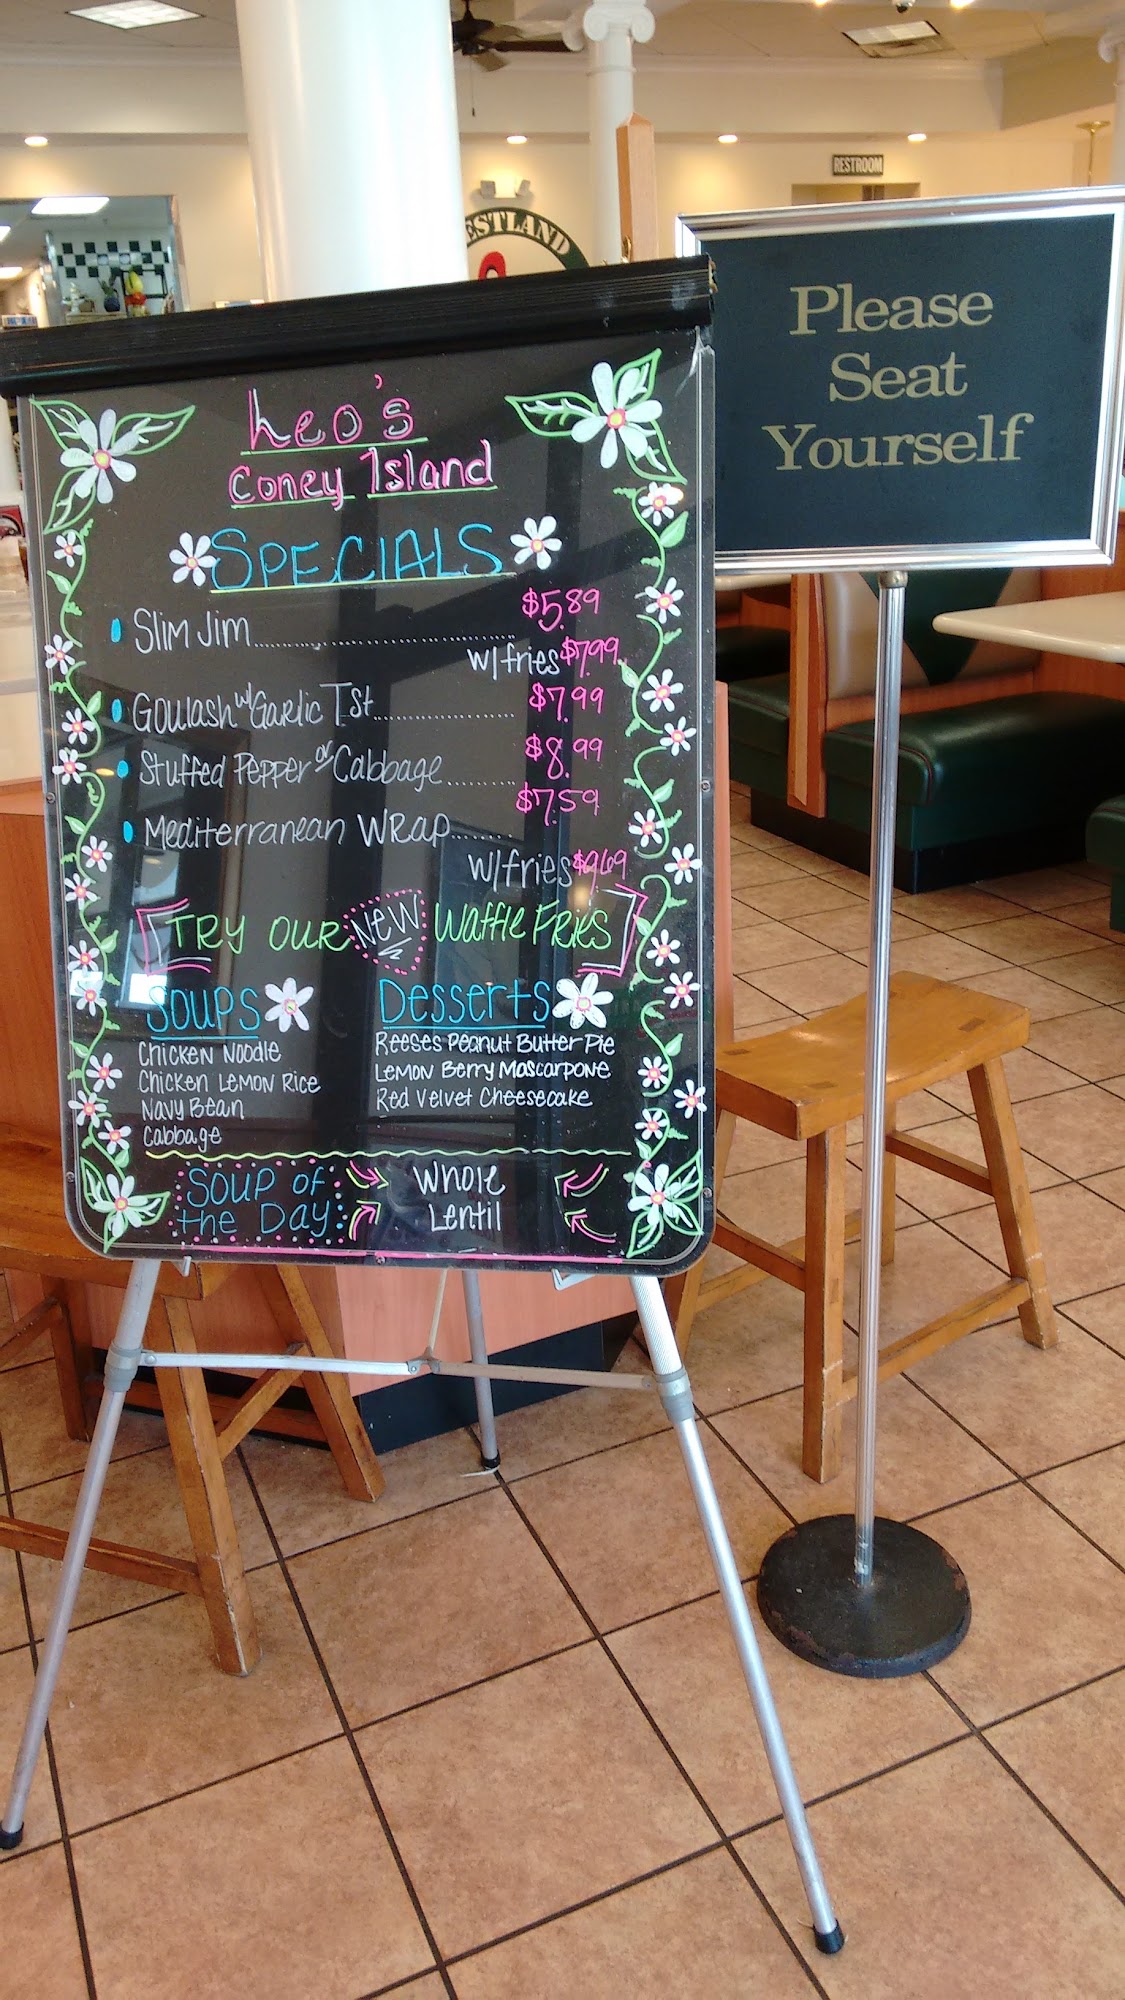 RESTROOM
ESTLAND
Please
Seat
Yourself
Leo's
Coney Island
SPECIALS
Slim Jim................................ $5.89
w/fries $7.99
Goulash w/ Garlic Tst................ $7.99
Stuffed Pepper or Cabbage......... $8.99
Mediterranean Wrap........ $7.59
w/fries $9.69
TRY OUR NEW Waffle Fries
SOUPS
Chicken Noodle
Chicken Lemon Rice
Navy Bean
Cabbage
Desserts
Reeses Peanut Butter Pie
Lemon Berry Mascarpone
Red Velvet Cheesecake
SOUP of
the Day
Whole
Lentil